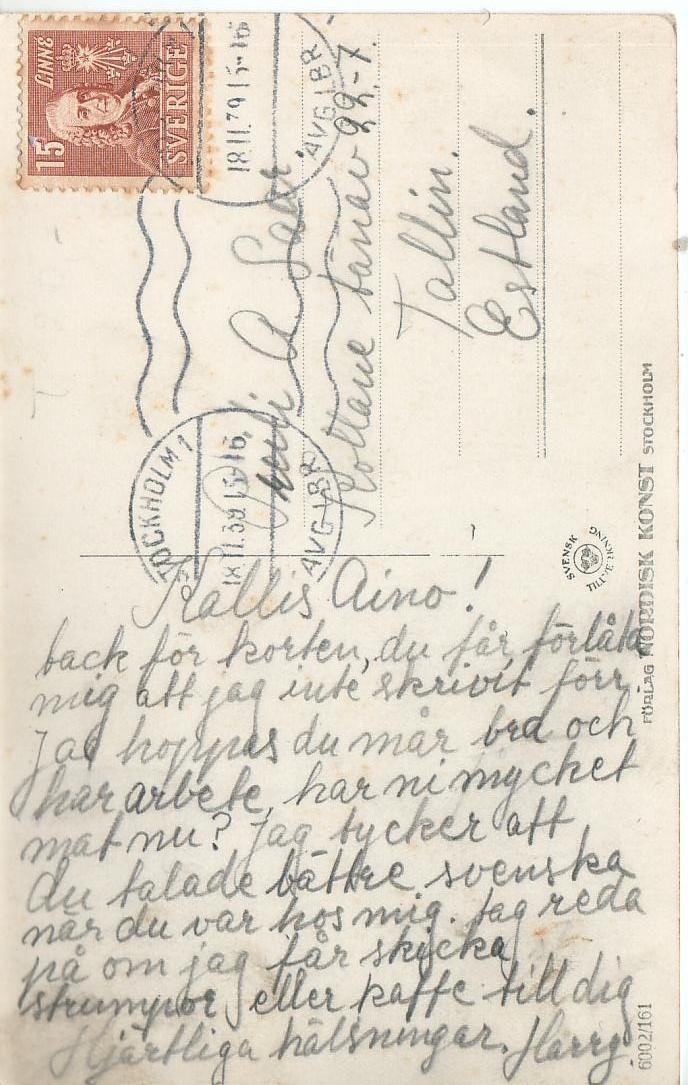 LINNÉ
15
SVERIGE
18.11.39 15-16
AVG LBR
A
Kollane tänav 22-7.
Tallin.
Estland.
STOCKHOLM 1
18.11.39 15-16
AVG LBR
Kallis Aino!
tack för korten, du får förlåta
mig att jag inte skrivit förr
Jag hoppas du mår bra och
har arbete, har ni mycket
mat nu? Jag tycker att
du talade bättre svenska
när du var hos mig. Jag reda
på om jag får skicka
strumpor eller kaffe till dig
Hjärtliga hälsningar. Harry.
SVENSK TILLVERKNING
FÖRLAG NORDISK KONST STOCKHOLM
6002/161